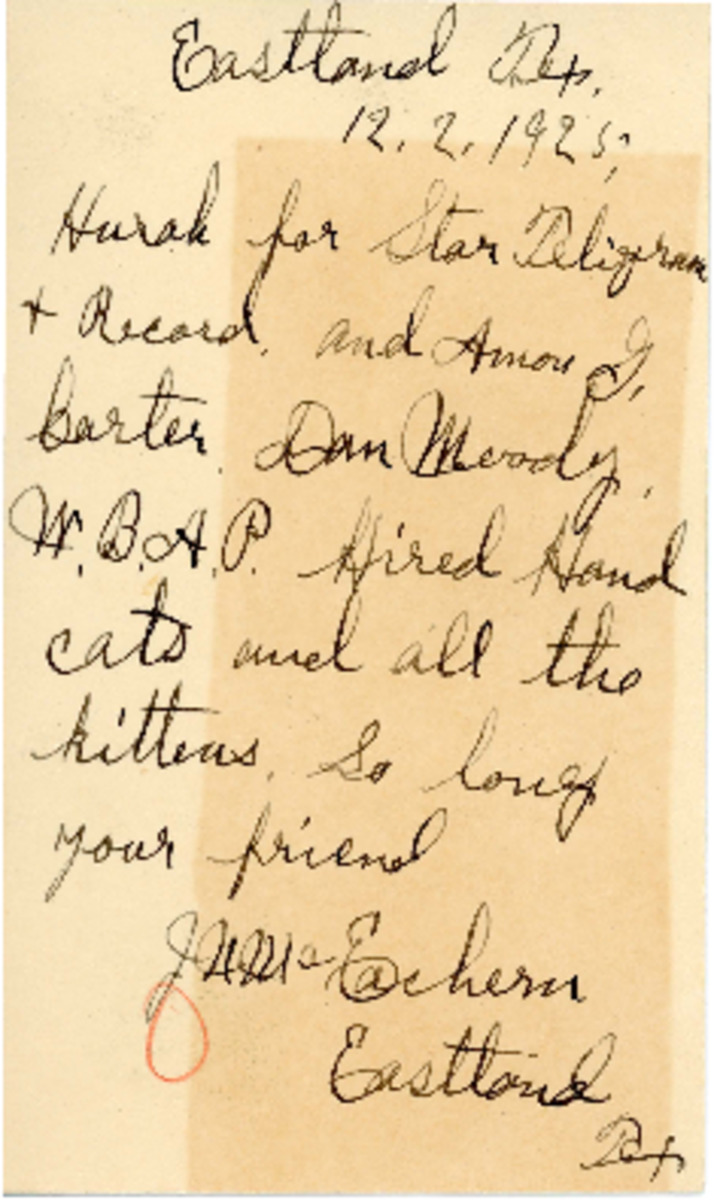 Eastland Tex.
12.2.1925,
Hurah for Star Teligram
+ Record, and Amon G,
Carter, Dan Moody,
W.B.A.P. Hired Hand
cats and all the
kittens. So long
your friend
J H Mc Eachern
Eastland
Tex